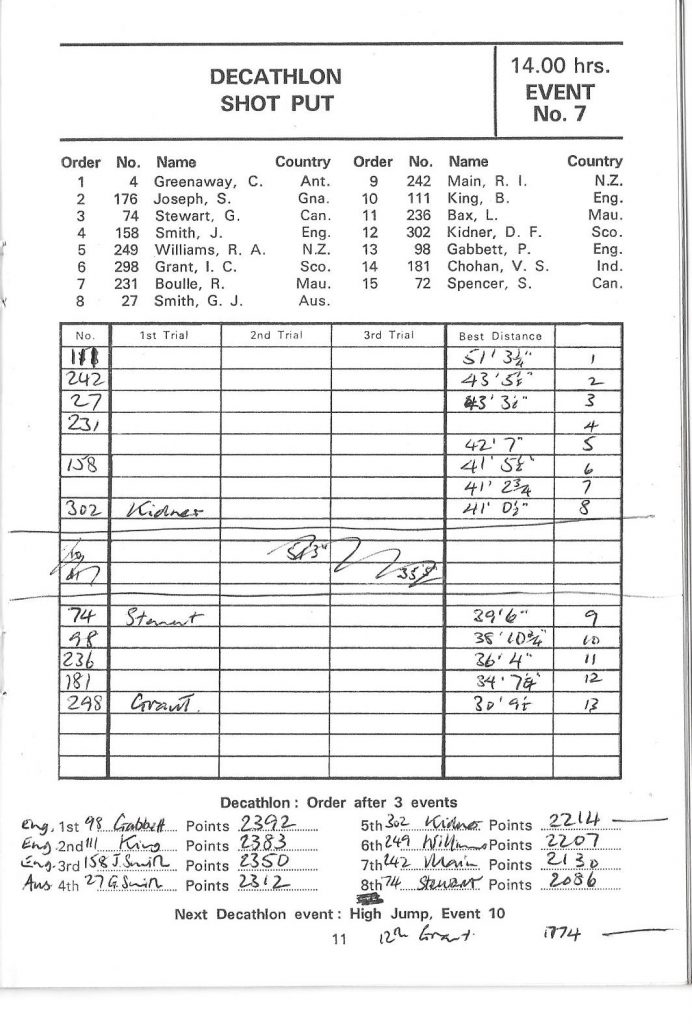 DECATHLON
SHOT PUT
14.00 hrs.
EVENT
No. 7
Order No. Name Country Order No. Name Country
1 4 Greenaway, C. Ant. 9 242 Main, R. I. N.Z.
2 176 Joseph, S. Gna. 10 111 King, B. Eng.
3 74 Stewart, G. Can. 11 236 Bax, L. Mau.
4 158 Smith, J. Eng. 12 302 Kidner, D. F. Sco.
5 249 Williams, R. A. N.Z. 13 98 Gabbett, P. Eng.
6 298 Grant, I. C. Sco. 14 181 Chohan, V. S. Ind.
7 231 Boulle, R. Mau. 15 72 Spencer, S. Can.
8 27 Smith, G. J. Aus.
No. 1st Trial 2nd Trial 3rd Trial Best Distance
111 51' 3¼" 1
242 43' 5½" 2
27 43' 3½" 3
231 4
42' 7" 5
158 41' 5½" 6
41' 2¾ 7
302 Kidner 41' 0½" 8
74 Stewart 39' 6" 9
98 38' 10¾" 10
236 36' 4" 11
181 34' 7¼" 12
298 Grant. 30' 9½ 13
Decathlon: Order after 3 events
Eng. 1st 98 Gabbett Points 2392 5th 302 Kidner Points 2214
Eng. 2nd 111 King Points 2383 6th 249 Williams Points 2207
Eng. 3rd 158 J. Smith Points 2350 7th 242 Main Points 2130
Aus 4th 27 G. Smith Points 2312 8th 74 Stewart Points 2086
Next Decathlon event: High Jump, Event 10
11 12th Grant. 1774